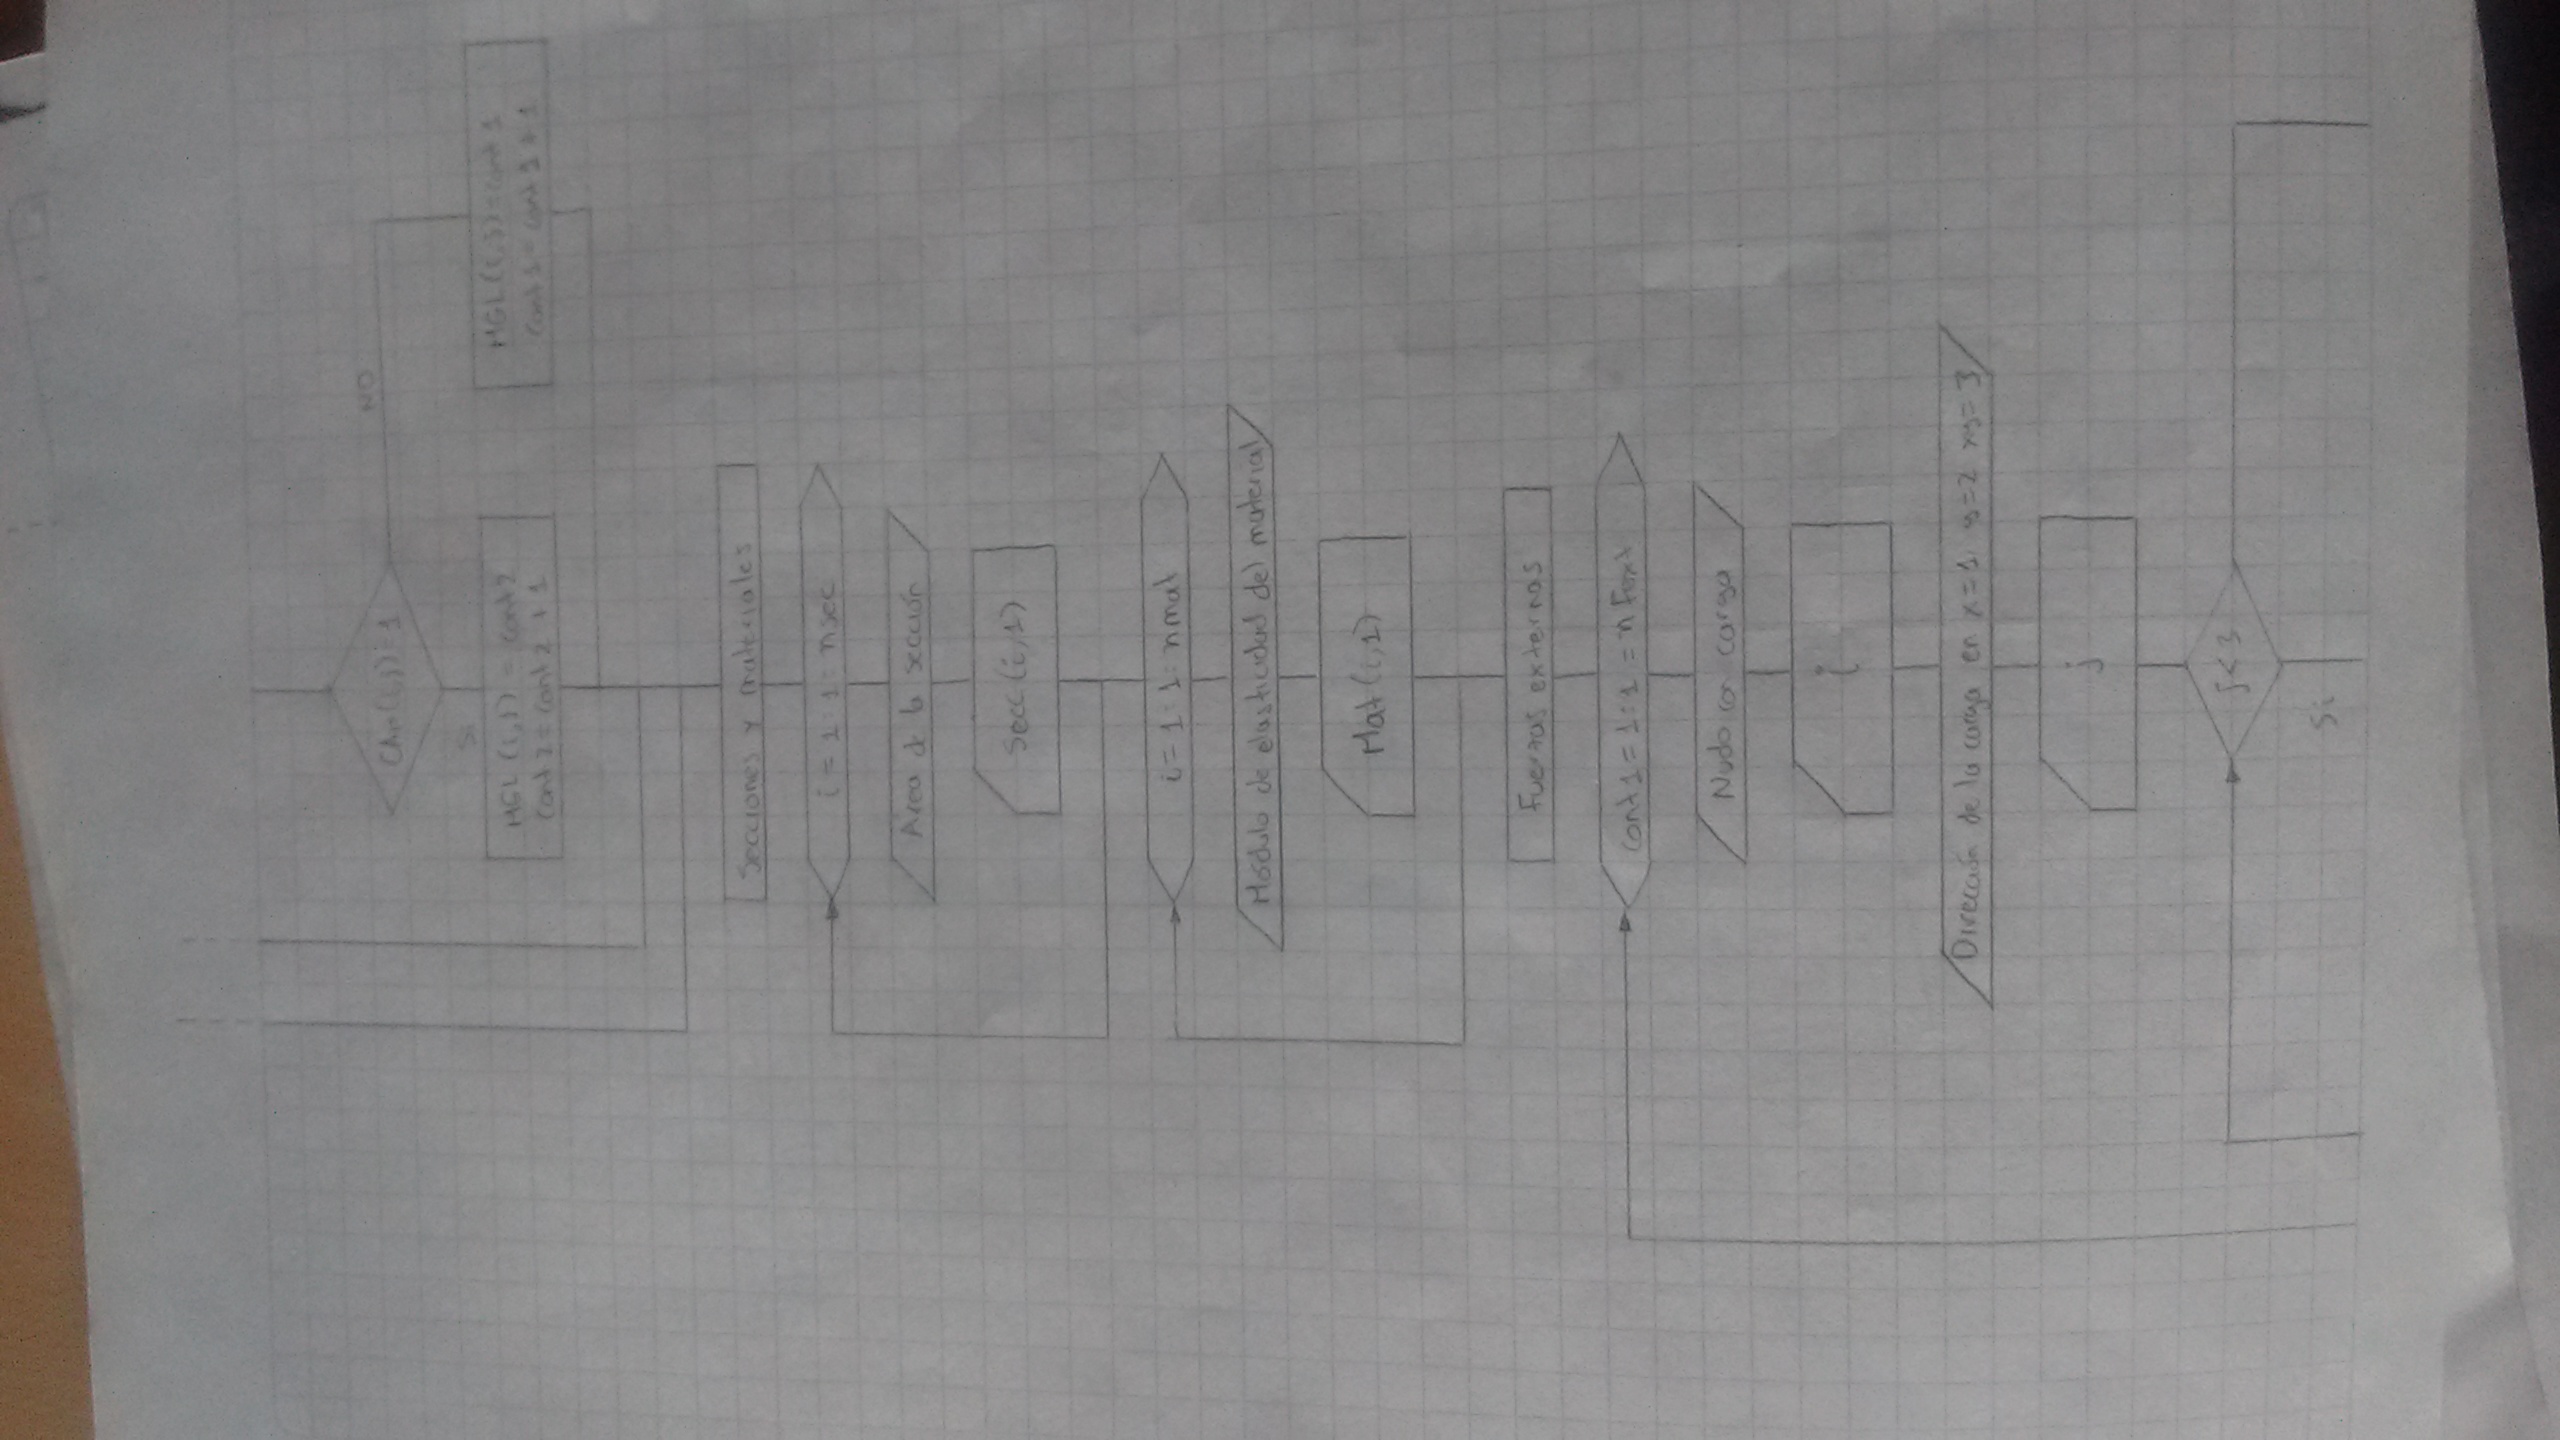 NO
MGL(i,j)=cont 1
cont 1 = cont 1 + 1
Si
MGL (i,j) = cont 2
cont 2 = cont 2 + 1
Secciones y materiales
i = 1 : 1 : nsec
Area de la sección
Secc (i,1)
i = 1 : 1 : nmat
Módulo de elasticidad del material
Mat (i,1)
Fuerzas externas
cont 1 = 1 : 1 = n Fext
Nudo con carga
i
Dirección de la carga en x=1, y=2 xy=3
j
j < 3
Si